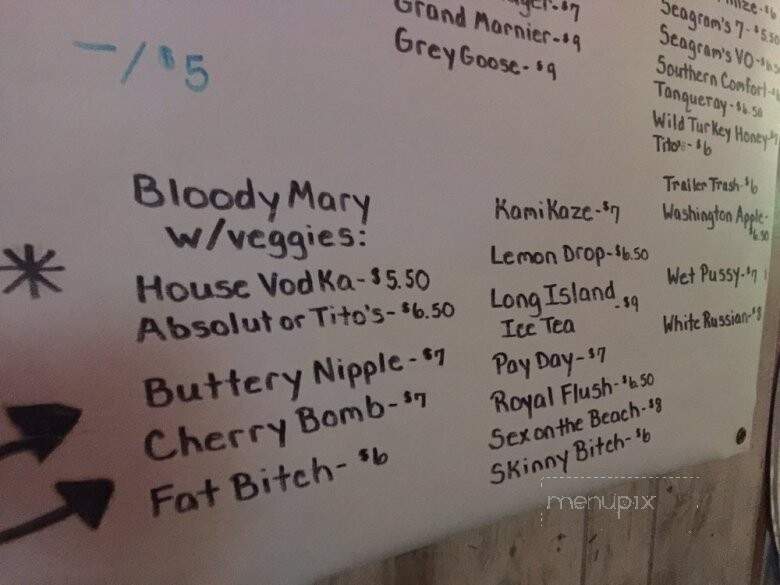 -/$5
Grand Marnier-$9
Grey Goose-$9
Seagram's 7-$5.50
Seagram's VO-
Southern Comfort-
Tanqueray-$6.50
Wild Turkey Honey-
Tito's-$6
Bloody Mary
w/veggies:
House Vodka-$5.50
Absolut or Tito's-$6.50
Buttery Nipple-$7
Cherry Bomb-$7
Fat Bitch-$6
KamiKaze-$7
Lemon Drop-$6.50
Long Island -$9
Ice Tea
Pay Day-$7
Royal Flush-$6.50
Sex on the Beach-$8
Skinny Bitch-$6
Trailer Trash-$6
Washington Apple-
$6.50
Wet Pussy-$7
White Russian-$8
menupix